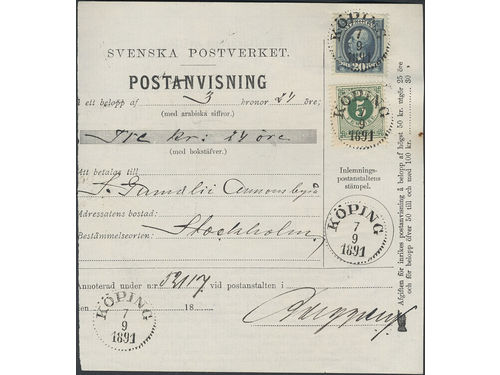 SVENSKA POSTVERKET.
POSTANVISNING
å ett belopp af 3 kronor 24 öre;
(med arabiska siffror.)
Tre kr: 24 öre
(med bokstäfver.)
Att betalas till
S. Gumælii Annonsbyrå
Adressatens bostad:
Bestämmelseorten: Stockholm
Annoterad under n:r 52117 vid postanstalten i
den 18
KÖPING
7
9
1891
KÖPING
7
9
1891
20
KÖPING
7
9
1891
5
Inlemnings-
postanstaltens
stämpel.
KÖPING
7
9
1891
Afgiften för inrikes postanvisning å belopp af högst 50 kr. utgör 25 öre
och för belopp öfver 50 till och med 100 kr. 30